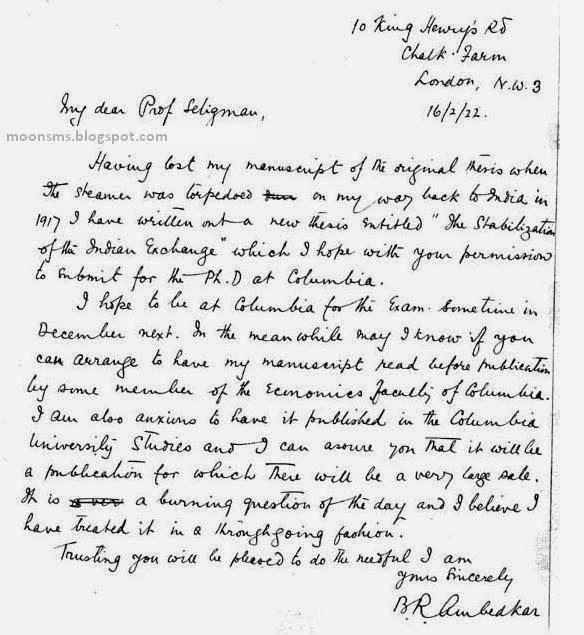 10 King Henry's Rd
Chalk Farm
London, N.W. 3
16/2/22.
My dear Prof Seligman,
moonsms.blogspot.com
Having lost my manuscript of the original thesis when
the steamer was torpedoed on my way back to India in
1917 I have written out a new thesis entitled "The Stabilization
of the Indian Exchange" which I hope with your permission
to submit for the Ph.D at Columbia.
I hope to be at Columbia for the Exam. sometime in
December next. In the meanwhile may I know if you
can arrange to have my manuscript read before publication
by some member of the Economics faculty of Columbia.
I am also anxious to have it published in the Columbia
University Studies and I can assure you that it will be
a publication for which there will be a very large sale.
It is a burning question of the day and I believe I
have treated it in a throughgoing fashion.
Trusting you will be pleased to do the needful I am
Yours Sincerely
B. R. Ambedkar